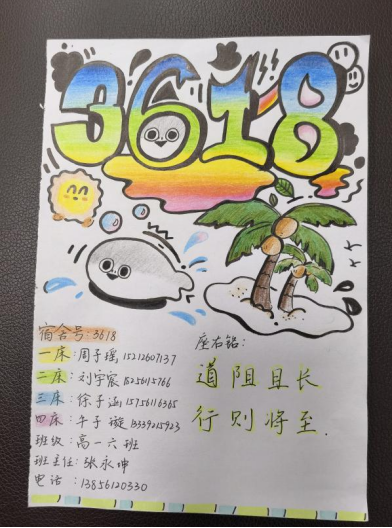 3618
宿舍号:3618
一床:周子瑶,15212607137
二床:刘宇宸 18256145766
三床:徐子涵:15756116365
四床:牛子璇 13339215923
班级:高一六班
班主任:张永坤
电话:13856120330
座右铭:
道阻且长
行则将至.